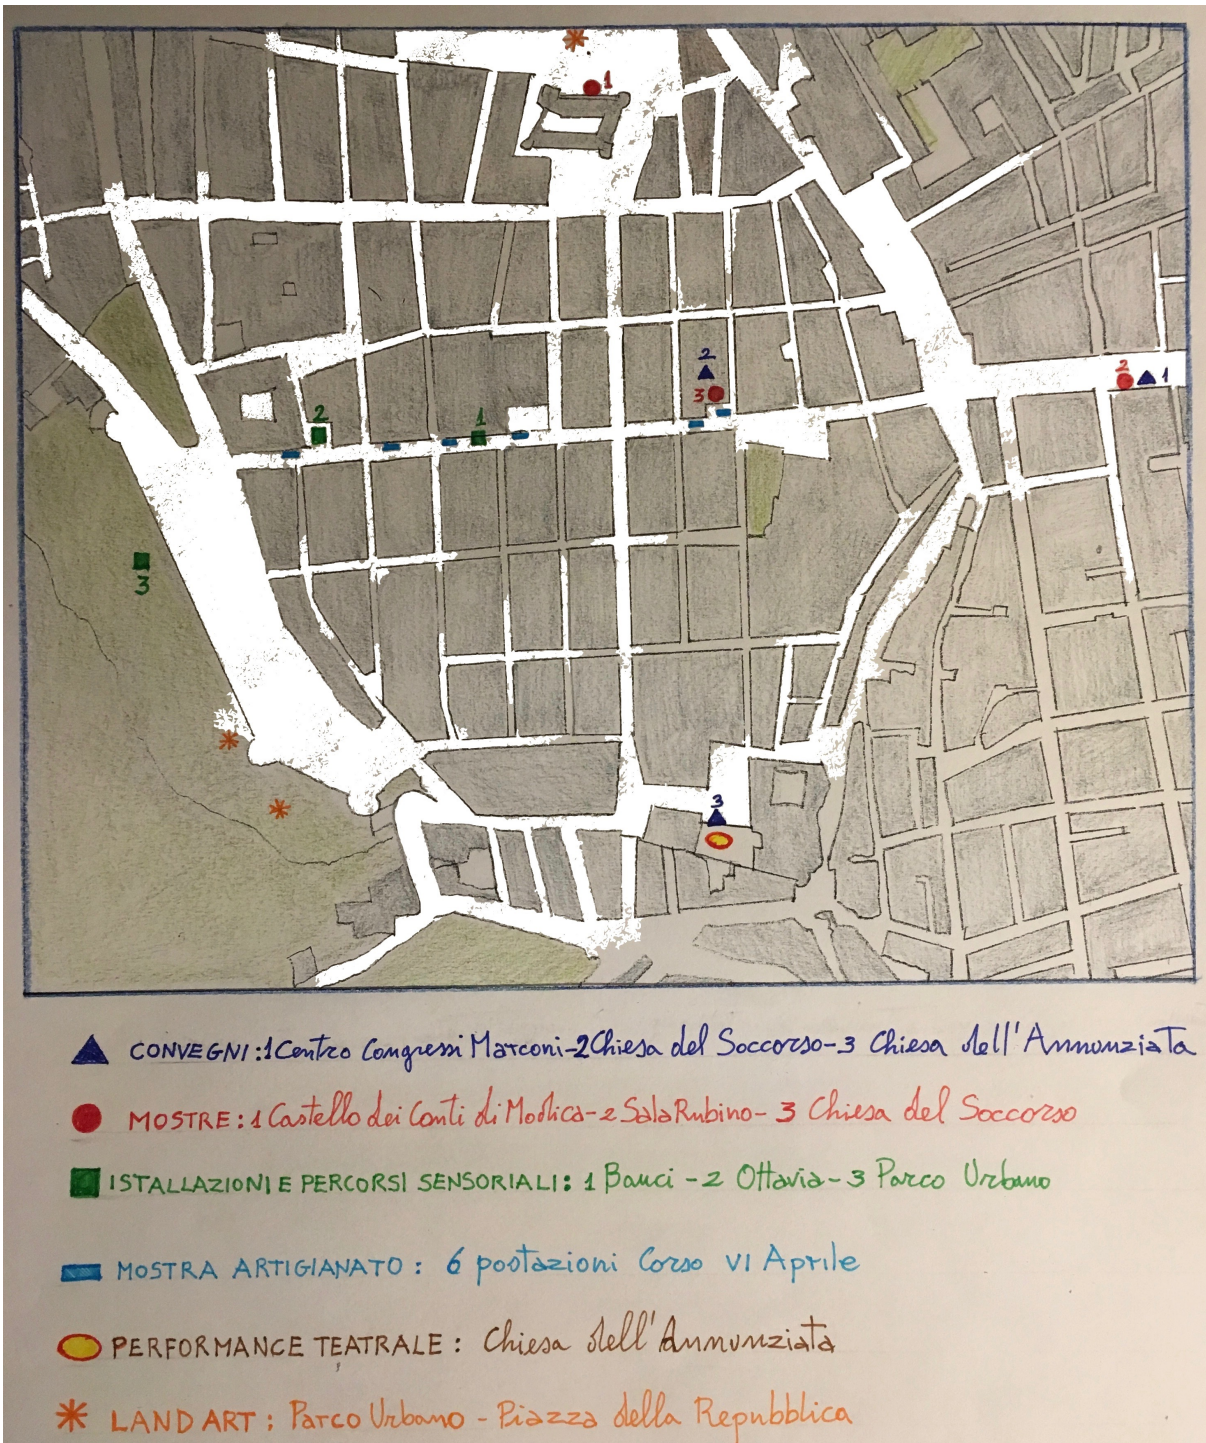 1
2
3
2
1
2
1
3
3
CONVEGNI: 1 Centro Congressi Marconi - 2 Chiesa del Soccorso - 3 Chiesa dell'Annunziata
MOSTRE: 1 Castello dei Conti di Modica - 2 Sala Rubino - 3 Chiesa del Soccorso
ISTALLAZIONI E PERCORSI SENSORIALI: 1 Bauci - 2 Ottavia - 3 Parco Urbano
MOSTRA ARTIGIANATO: 6 postazioni Corso VI Aprile
PERFORMANCE TEATRALE: Chiesa dell'Annunziata
LAND ART: Parco Urbano - Piazza della Repubblica